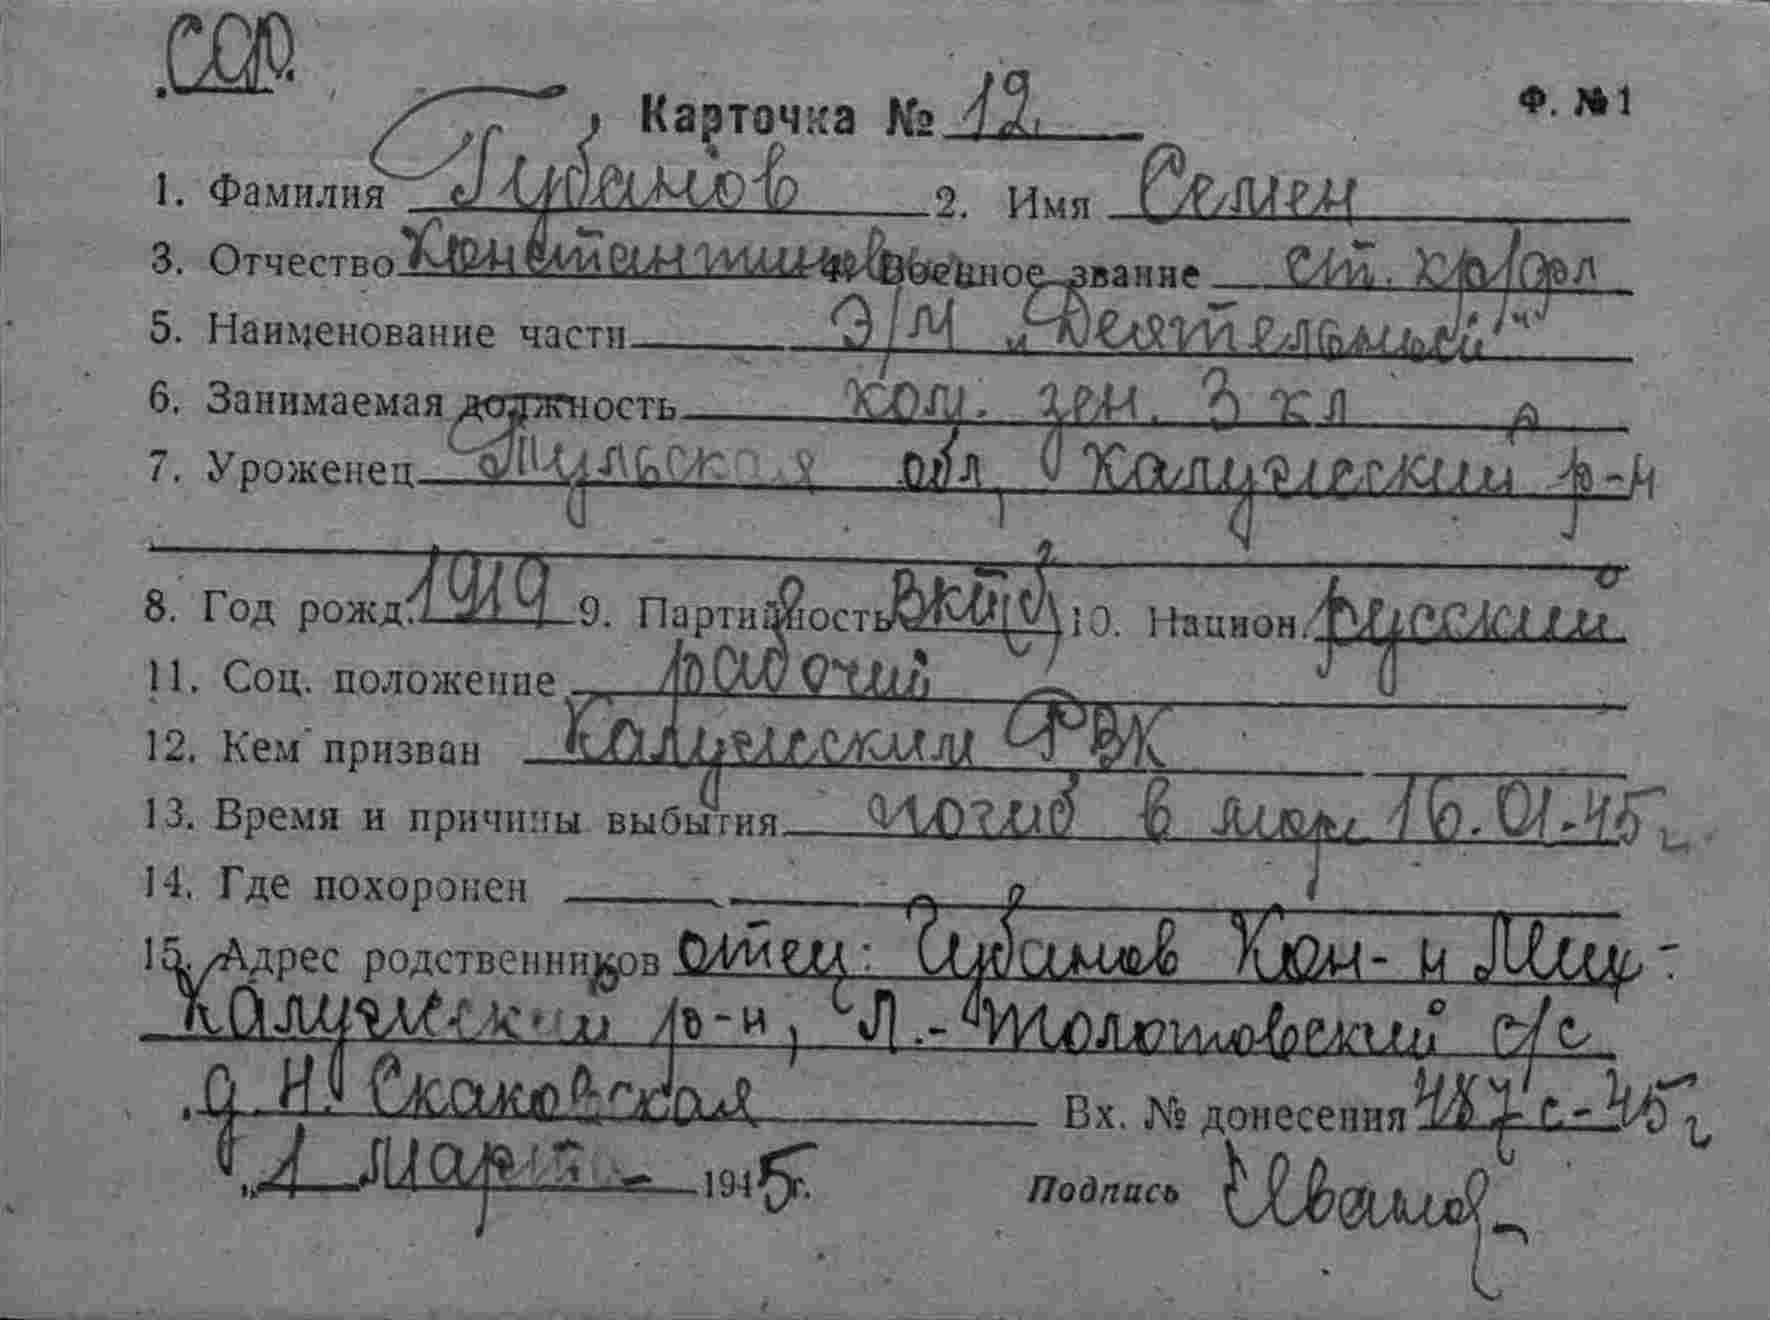 ССФ.
Карточка № 12. Ф. № 1
1. Фамилия Губанов 2. Имя Семен
3. Отчество Константинович 4. Военное звание ст. кр/фл
5. Наименование части Э/М „Деятельный"
6. Занимаемая должность ком. зен. 3 кл
7. Уроженец Тульская обл, Калужский р-н
8. Год рожд. 1919 9. Партийность ВКП(б) 10. Национ. русский
11. Соц. положение рабочий
12. Кем призван Калужским РВК
13. Время и причины выбытия погиб в море 16.01.45 г
14. Где похоронен
15. Адрес родственников отец: Губанов Кон-н Мих-
Калужский р-н, Л.-Толстовский с/с
д. Н. Скаковская Вх. № донесения 487с-45 г
„1 марта 1945 г. Подпись Иванов